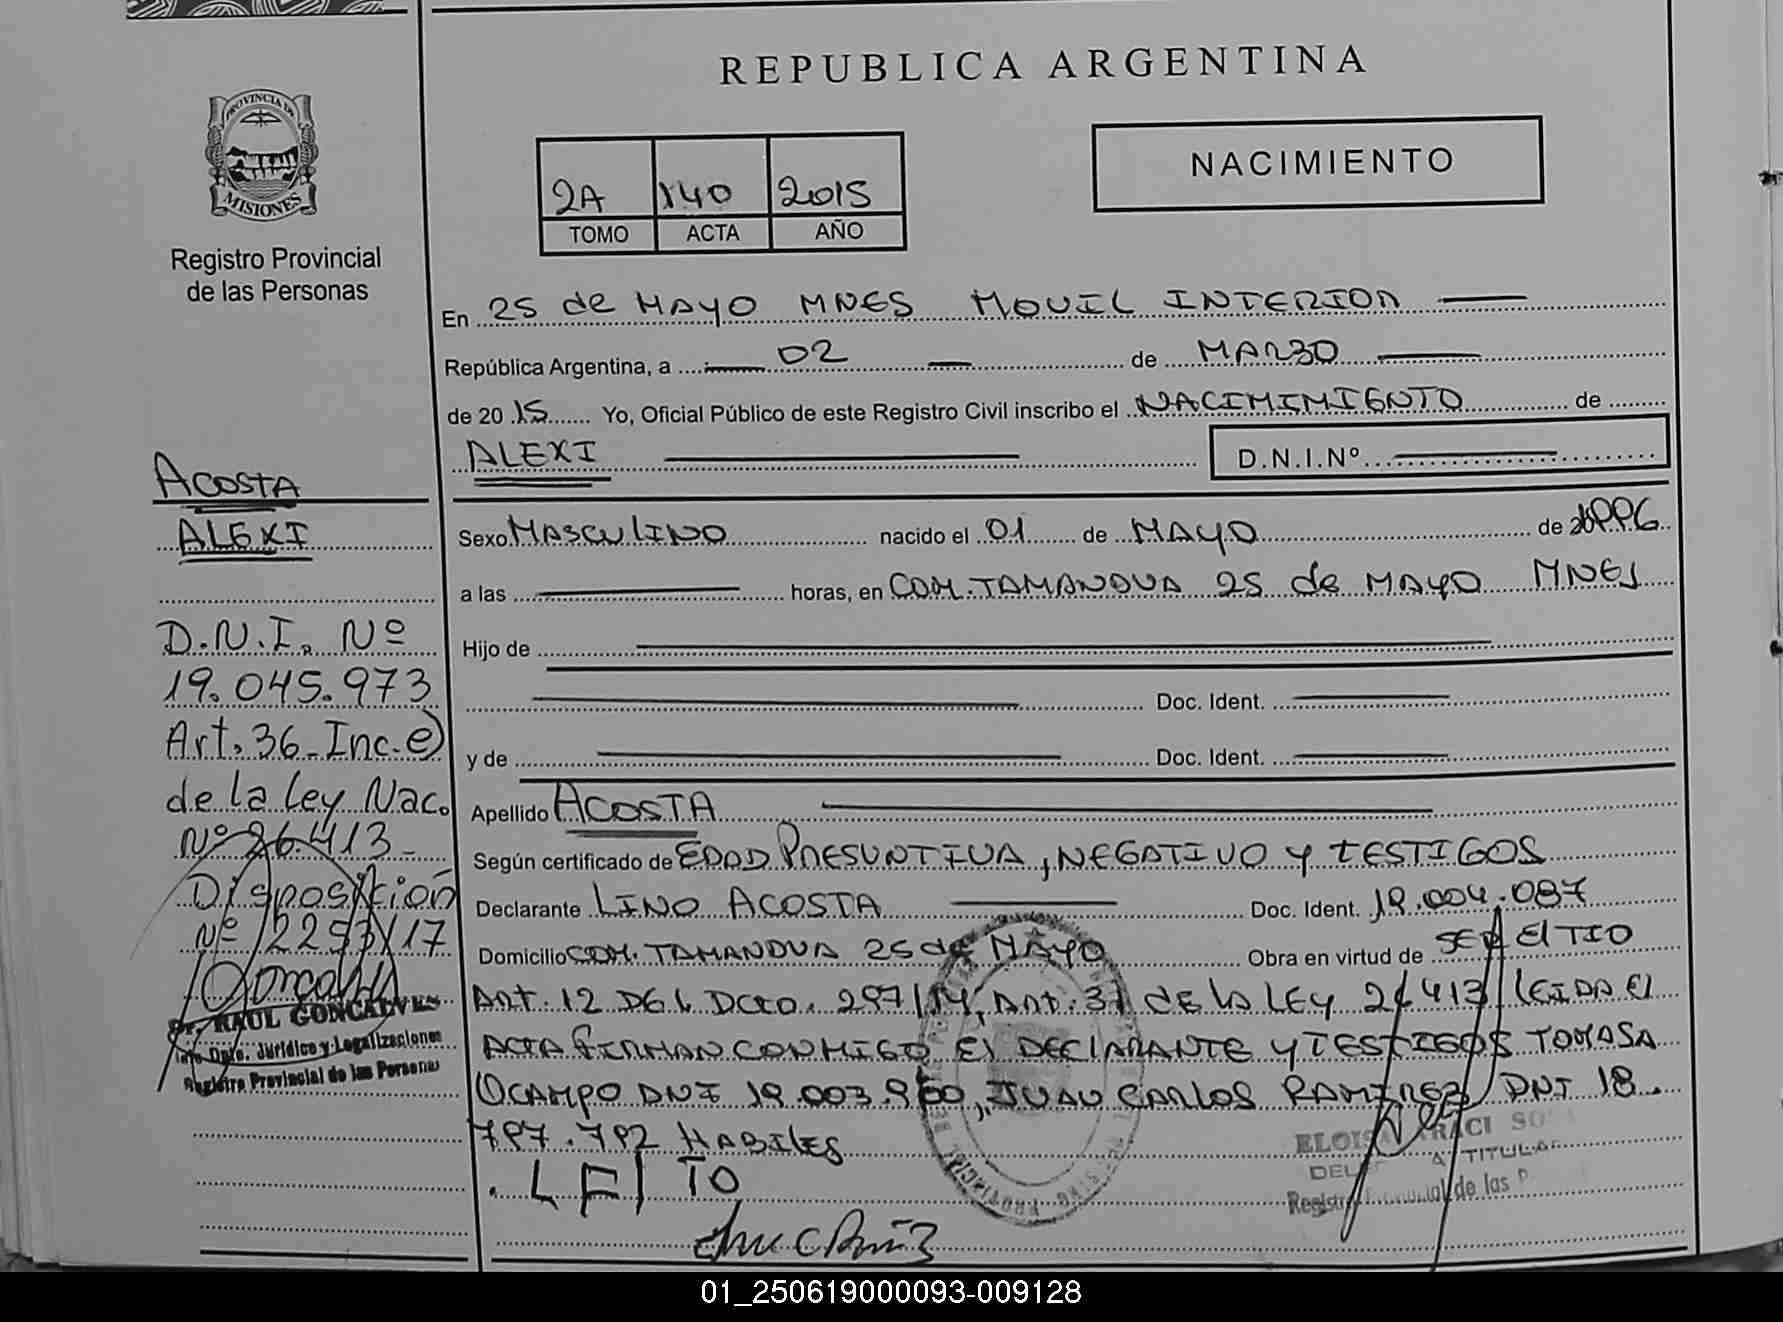 REPUBLICA ARGENTINA
PROVINCIA DE
MISIONES
Registro Provincial
de las Personas
2A 140 2015
TOMO ACTA AÑO
NACIMIENTO
En 25 de MAYO MNES MOVIL INTERIOR
República Argentina, a 02 de MARZO
de 2015 Yo, Oficial Público de este Registro Civil inscribo el NACIMIMIENTO de
ALEXI
D.N.I.Nº
Sexo MASCULINO nacido el 01 de MAYO de
a las horas, en COM. TAMANDUA 25 de MAYO MNES
Hijo de
Doc. Ident.
y de Doc. Ident.
Apellido ACOSTA
Según certificado de EDAD PRESUNTIVA, NEGATIVO y TESTIGOS
Declarante LINO ACOSTA Doc. Ident. 19.004.087
Domicilio COM. TAMANDUA 25 de MAYO Obra en virtud de SER El TIO
ART. 12 DEL DCTO. 297/14, ART. 37 DE LA LEY 26413 LEIDA El
ACTA FIRMAN CONMIGO El DECLARANTE y TESTIGOS TOMASA
OCAMPO DNI 19.003.950, JUAN CARLOS RAMIREZ DNI 18.
797.792 HABILES
ACOSTA
ALEXI
D.N.I. Nº
19.045.973
Art. 36-Inc. e)
de la Ley Nac.
Nº 26.413-
Disposición
Nº 2293/17
Dr. RAUL GONCALVES
Jefe Dpto. Jurídico y Legalizaciones
Registro Provincial de las Personas
TITULAR
de las
01_250619000093-009128